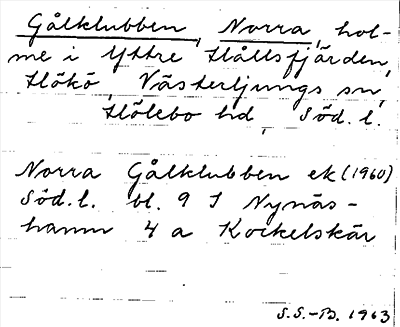 Gålklubben, Norra, hol-
me i Yttre Hållsfjärden,
Hökö, Västerljungs sn,
Hölebo hd, Söd. l.
Norra Gålklubben ek (1960)
Söd. l. bl. 9 I Nynäs-
hamn 4 a Kockelskär
S.S.-B. 1963